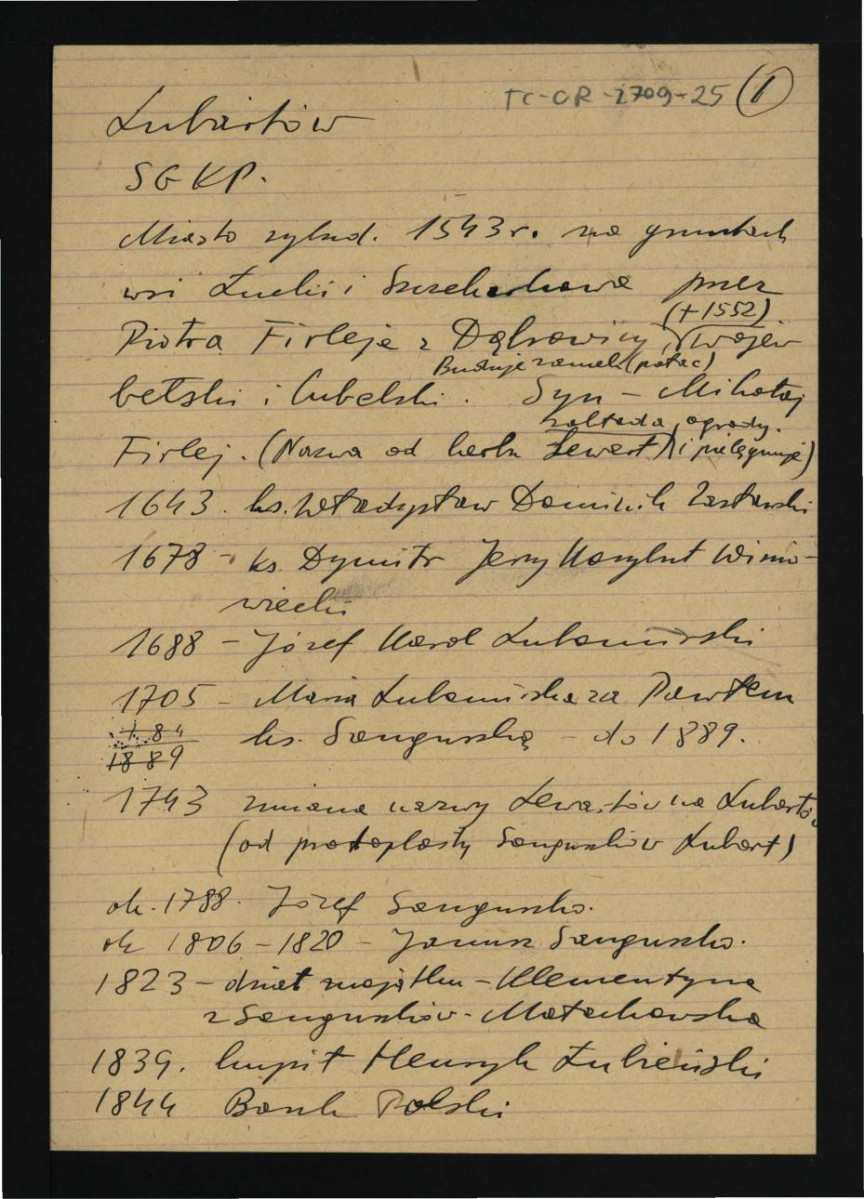 TC-OR-2709-25 (1)
Lubartów
SGKP.
Miasto założ. 1543 r. na gruntach
wsi Łucki i Szczekarkowa przez
(+1552)
Piotra Firleja z Dąbrowicy, wojew
Buduje zamek (pałac)
bełski i lubelski. Syn – Mikołaj
zakłada ogrody.
Firlej. (Nazwa od herbu Lewart) i pielęgnuje)
1643. ks. Władysław Dominik Zasławski
1678 – ks. Dymitr Jerzy Korybut Wiśnio-
wiecki
1688 – Józef Karol Lubomirski
1705 – Maria Lubomirska za Pawłem
1889 ks. Sanguszką – do 1889.
1743 zmiana nazwy Lewartów na Lubartów
(od protoplasty Sanguszków Lubart)
ok. 1788. Józef Sanguszko.
ok 1806 – 1820 – Janusz Sanguszko.
1823 – dział majątku – Klementyna
z Sanguszków – Małachowska
1839. kupił Henryk Łubieński
1844 Bank Polski